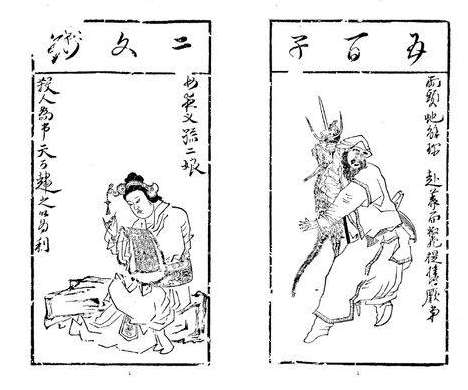 五百子
兩頭蛇解珍
赴義而斃提携厥弟
二文錢
母夜叉孫二娘
殺人為市天下趨之以為利